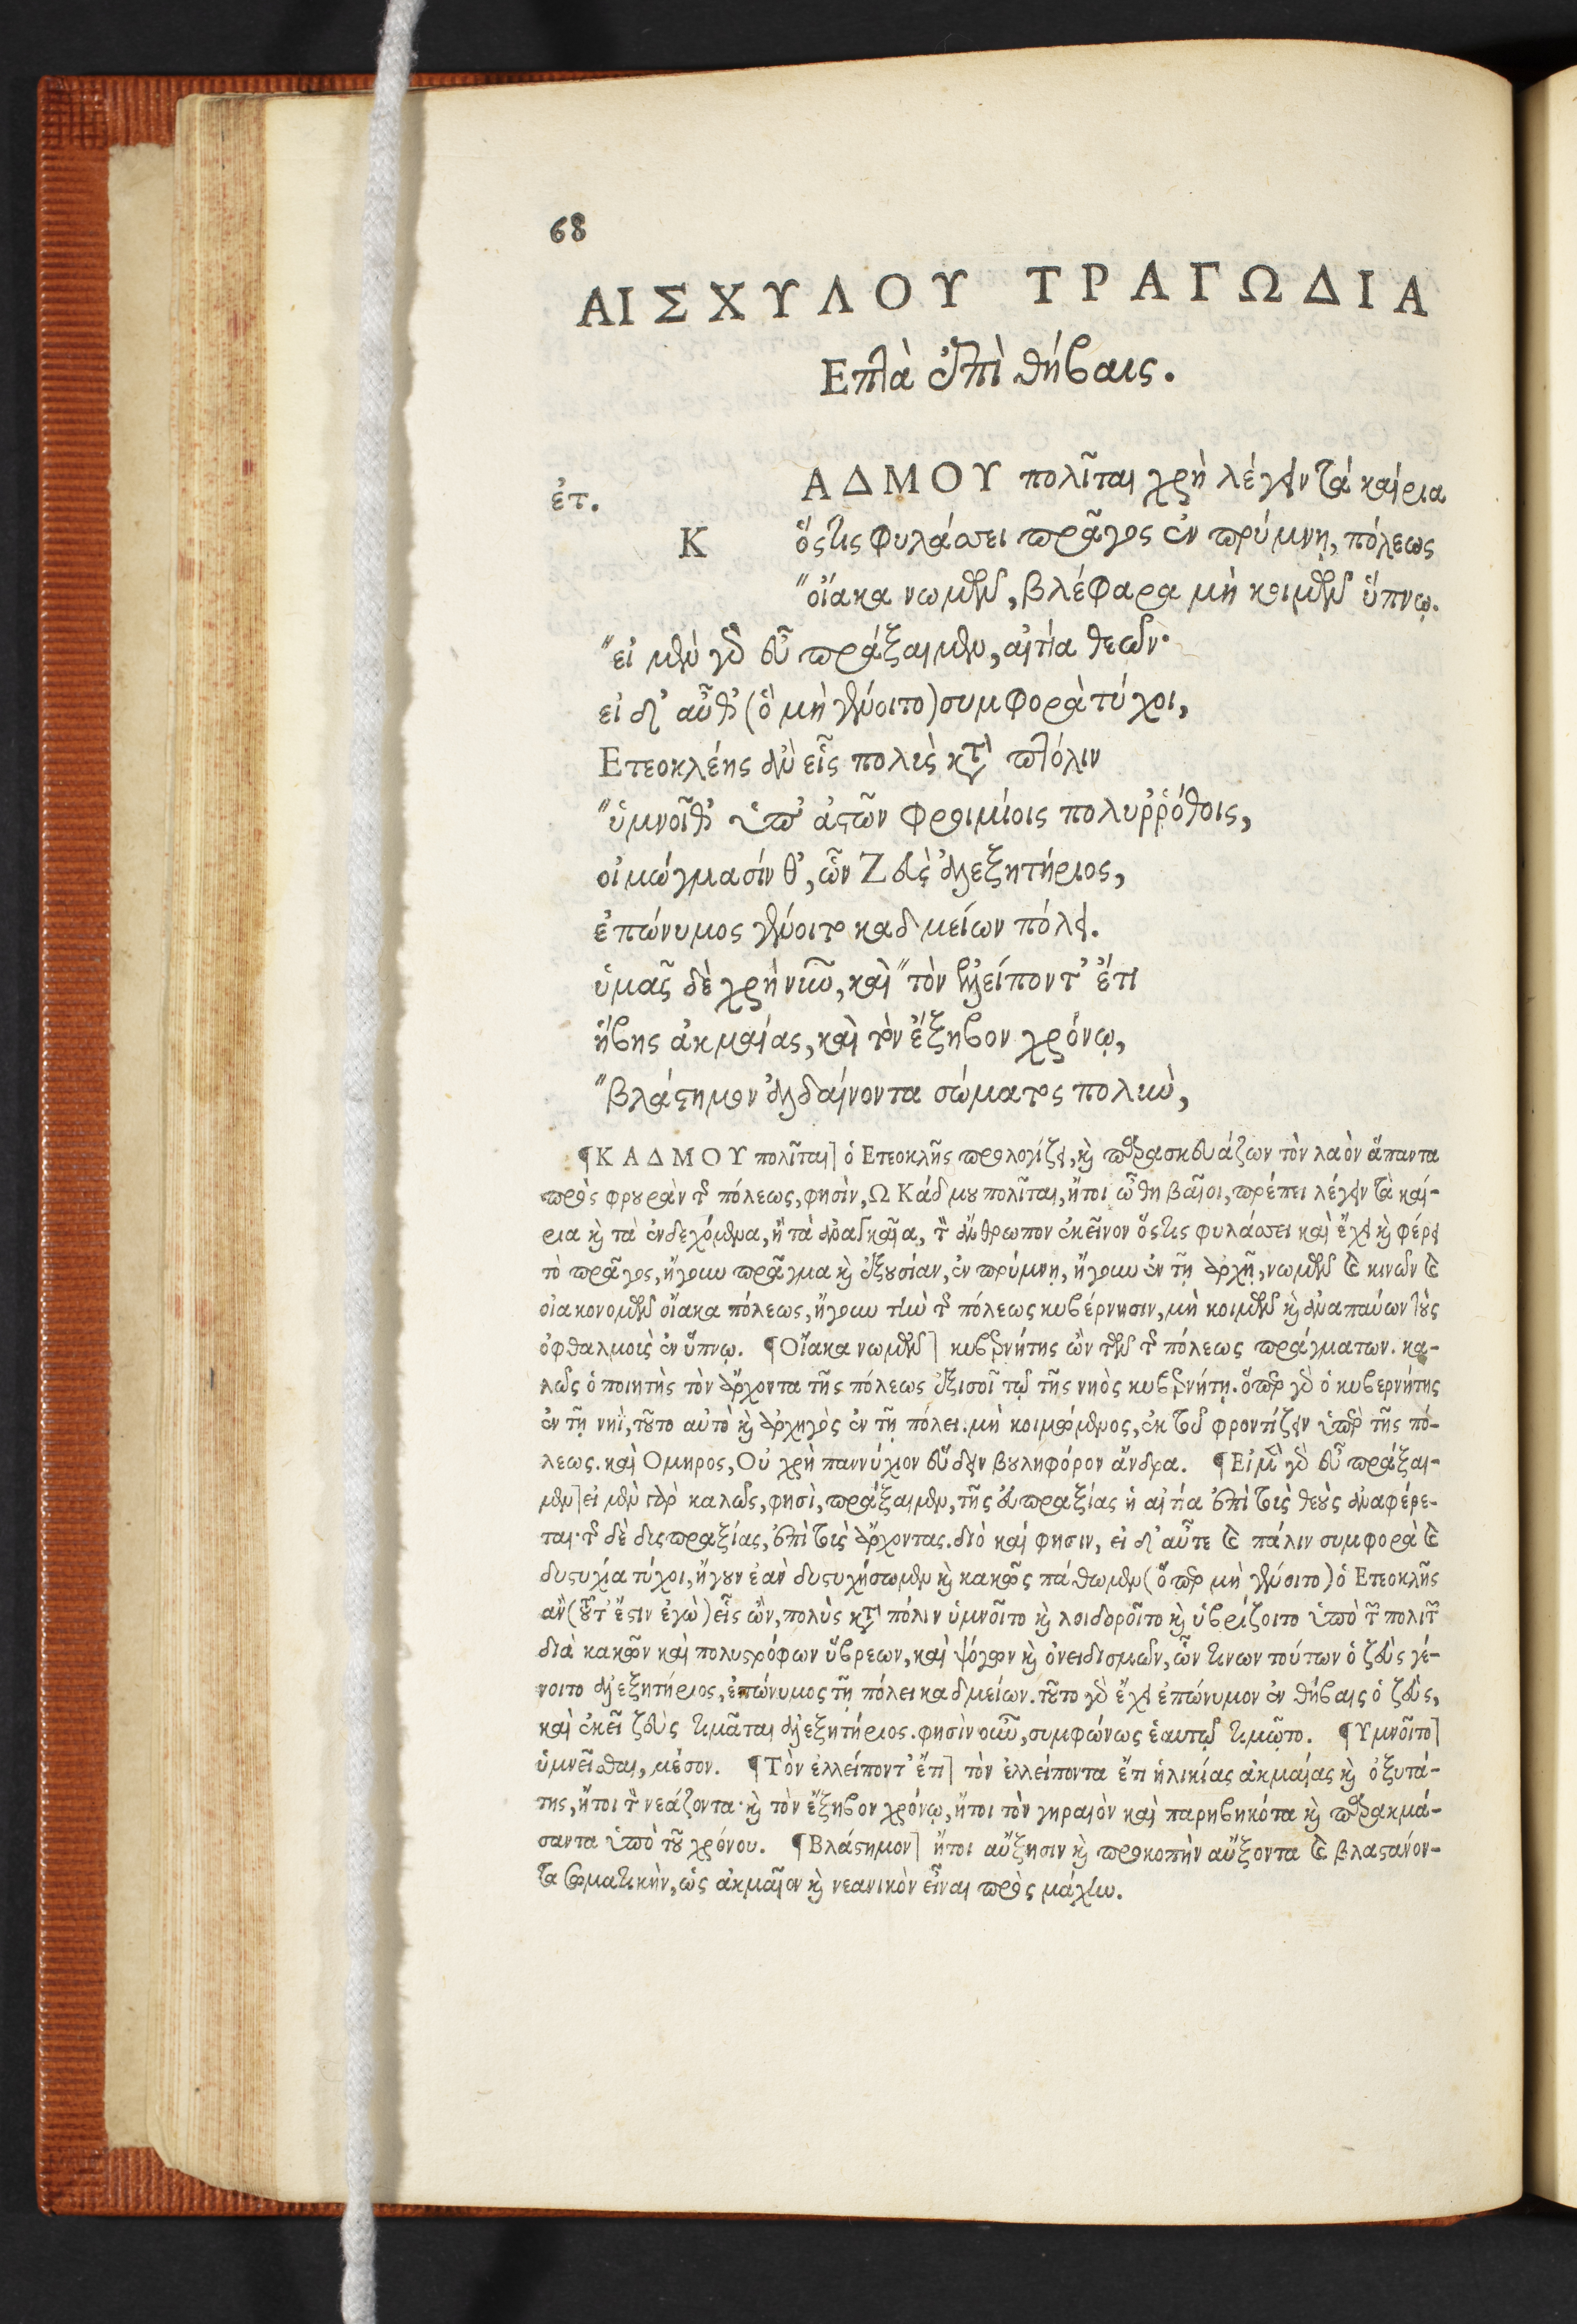 68
ΑΙΣΧΥΛΟΥ ΤΡΑΓΩΔΙΑ
Επτὰ ἐπὶ θήβαις.
ἐτ.
ΑΔΜΟΥ πολῖται χρὴ λέγειν τὰ καίρια
Κ ὅστις φυλάσσει πρᾶγος ἐν πρύμνῃ, πόλεως
"οἴακα νωμῶν, βλέφαρα μὴ κοιμῶν ὕπνῳ.
"εἰ μὲν γὰρ εὖ πράξαιμεν, αἰτία θεῶν·
εἰ δ' αὖθ' (ὃ μὴ γένοιτο) συμφορὰ τύχοι,
Ετεοκλέης ἂν εἷς πολὺς κατὰ πτόλιν
"ὑμνοῖθ' ὑπ' ἀστῶν φροιμίοις πολυῤῥόθοις,
οἰμώγμασίν θ', ὧν Ζεὺς ἀλεξητήριος,
ἐπώνυμος γένοιτο καδμείων πόλει.
ὑμᾶς δὲ χρὴ νῦν, καὶ "τὸν ἐλλείποντ' ἔτι
ἥβης ἀκμαίας, καὶ τὸν ἔξηβον χρόνῳ,
"βλάστημον ἀλδαίνοντα σώματος πολὺν,
¶ΚΑΔΜΟΥ πολῖται] ὁ Ετεοκλῆς προλογίζει, καὶ παρασκευάζων τὸν λαὸν ἅπαντα
πρὸς φρουρὰν τῆς πόλεως, φησὶν, Ω Κάδμου πολῖται, ἤτοι ὦ θηβαῖοι, πρέπει λέγειν τὰ καί-
ρια καὶ τὰ ἐνδεχόμενα, ἢ τὰ ἀναγκαῖα, τὸν ἄνθρωπον ἐκεῖνον ὅστις φυλάσσει καὶ ἔχει καὶ φέρει
τὸ πρᾶγος, ἤγουν πρᾶγμα καὶ ἐξουσίαν, ἐν πρύμνῃ, ἤγουν ἐν τῇ ἀρχῇ, νωμῶν καὶ κινῶν καὶ
οἰακονομῶν οἴακα πόλεως, ἤγουν τὴν τῆς πόλεως κυβέρνησιν, μὴ κοιμῶν καὶ ἀναπαύων τοὺς
ὀφθαλμοὺς ἐν ὕπνῳ. ¶Οἴακα νωμῶν] κυβερνήτης ὢν τῶν τῆς πόλεως πράγματων. κα-
λῶς ὁ ποιητὴς τὸν ἄρχοντα τῆς πόλεως ἐξισοῖ τῷ τῆς νηὸς κυβερνήτῃ. ὅπερ γὰρ ὁ κυβερνήτης
ἐν τῇ νηῒ, τοῦτο αὐτὸ καὶ ἀρχηγὸς ἐν τῇ πόλει. μὴ κοιμώμενος, ἐκ τοῦ φροντίζειν ὑπὲρ τῆς πό-
λεως. καὶ Ομηρος, Οὐ χρὴ παννύχιον εὕδειν βουληφόρον ἄνδρα. ¶Εἰ μὲν γὰρ εὖ πράξαι-
μεν] εἰ μὲν γὰρ καλῶς, φησὶ, πράξαιμεν, τῆς εὐπραξίας ἡ αἰτία ἐπὶ τοὺς θεοὺς ἀναφέρε-
ται· τῆς δὲ δυςπραξίας, ἐπὶ τοὺς ἄρχοντας. διὸ καί φησιν, εἰ δ' αὖτε καὶ πάλιν συμφορὰ καὶ
δυςυχία τύχοι, ἤγουν ἐὰν δυςυχήσωμεν καὶ κακῶς πάθωμεν (ὅπερ μὴ γένοιτο) ὁ Ετεοκλῆς
ἂν (τοῦτ' ἔστιν ἐγὼ) εἷς ὢν, πολὺς κατὰ πόλιν ὑμνοῖτο καὶ λοιδοροῖτο καὶ ὑβρίζοιτο ὑπὸ τῶν πολιτῶν
διὰ κακῶν καὶ πολυστρόφων ὕβρεων, καὶ ψόγων καὶ ὀνειδισμῶν, ὧν τινων τούτων ὁ ζεὺς γέ-
νοιτο ἀλεξητήριος, ἐπώνυμος τῇ πόλει καδμείων. τοῦτο γὰρ ἔχει ἐπώνυμον ἐν θήβαις ὁ ζεὺς,
καὶ ἐκεῖ ζεὺς τιμᾶται ἀλεξητήριος. φησὶν οὖν, συμφώνως ἑαυτῷ τιμῷτο. ¶Υμνοῖτο]
ὑμνεῖσθαι, μέσον. ¶Τὸν ἐλλείποντ' ἔτι] τὸν ἐλλείποντα ἔτι ἡλικίας ἀκμαίας καὶ ὀξυτά-
της, ἤτοι τὸν νεάζοντα· καὶ τὸν ἔξηβον χρόνῳ, ἤτοι τὸν γηραιὸν καὶ παρηβηκότα καὶ παρακμά-
σαντα ὑπὸ τοῦ χρόνου. ¶Βλάστημον] ἤτοι αὔξησιν καὶ προκοπὴν αὔξοντα καὶ βλαστάνον-
τα σωματικὴν, ὡς ἀκμαῖον καὶ νεανικὸν εἶναι πρὸς μάχην.